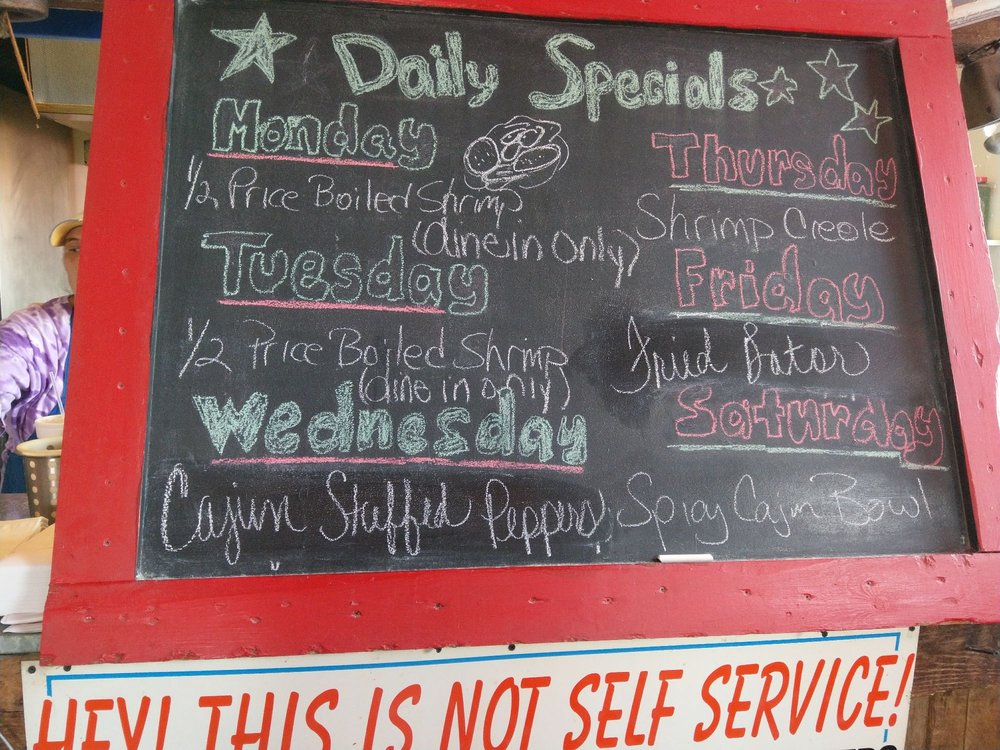 Daily Specials
Monday
1/2 Price Boiled Shrimp
(dine in only)
Tuesday
1/2 Price Boiled Shrimp
(dine in only)
Wednesday
Cajun Stuffed Peppers
Thursday
Shrimp Creole
Friday
Fried Gator
Saturday
Spicy Cajun Bowl
HEY! THIS IS NOT SELF SERVICE!